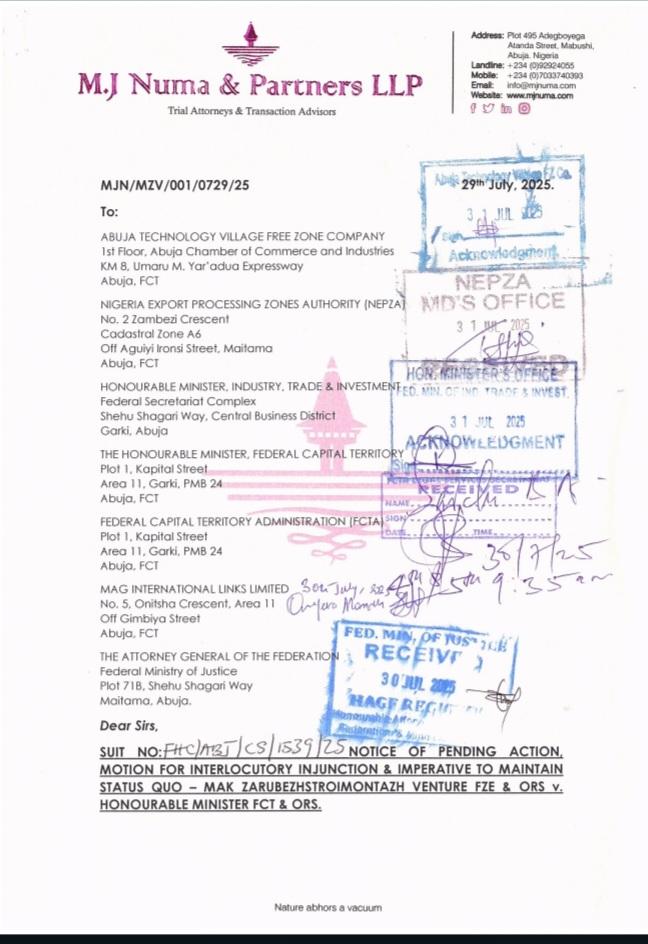 M.J NUMA & PARTNERS LLP
Trial Attorneys & Transaction Advisors
Address: Plot 495 Adegboyega
Atanda Street, Mabushi,
Abuja. Nigeria
Landline: +234 (0)92924055
Mobile: +234 (0)7033740393
Email: info@mjnuma.com
Website: www.mjnuma.com
MJN/MZV/001/0729/25
29th July, 2025.
To:
ABUJA TECHNOLOGY VILLAGE FREE ZONE COMPANY
1st Floor, Abuja Chamber of Commerce and Industries
KM 8, Umaru M. Yar'adua Expressway
Abuja, FCT
NIGERIA EXPORT PROCESSING ZONES AUTHORITY (NEPZA)
No. 2 Zambezi Crescent
Cadastral Zone A6
Off Aguiyi Ironsi Street, Maitama
Abuja, FCT
HONOURABLE MINISTER, INDUSTRY, TRADE & INVESTMENT
Federal Secretariat Complex
Shehu Shagari Way, Central Business District
Garki, Abuja
THE HONOURABLE MINISTER, FEDERAL CAPITAL TERRITORY
Plot 1, Kapital Street
Area 11, Garki, PMB 24
Abuja, FCT
FEDERAL CAPITAL TERRITORY ADMINISTRATION (FCTA)
Plot 1, Kapital Street
Area 11, Garki, PMB 24
Abuja, FCT
MAG INTERNATIONAL LINKS LIMITED
No. 5, Onitsha Crescent, Area 11
Off Gimbiya Street
Abuja, FCT
THE ATTORNEY GENERAL OF THE FEDERATION
Federal Ministry of Justice
Plot 71B, Shehu Shagari Way
Maitama, Abuja.
Abuja Technology Village FZ Co.
31 JUL 2025
Sign
Acknowledgment
NEPZA
MD'S OFFICE
31 JUL 2025
RECEIVED
HON. MINISTER'S OFFICE
FED. MIN. OF IND. TRADE & INVEST.
31 JUL 2025
ACKNOWLEDGMENT
Sign
RECEIVED
NAME
SIGN
DATE TIME
30/7/25
9:35am
30th July,
FED. MIN. OF JUSTICE
RECEIVED
30 JUL 2025
HAGF REGISTRY
Dear Sirs,
SUIT NO: FHC/ABJ/CS/1539/25 NOTICE OF PENDING ACTION,
MOTION FOR INTERLOCUTORY INJUNCTION & IMPERATIVE TO MAINTAIN
STATUS QUO – MAK ZARUBEZHSTROIMONTAZH VENTURE FZE & ORS v.
HONOURABLE MINISTER FCT & ORS.
Nature abhors a vacuum